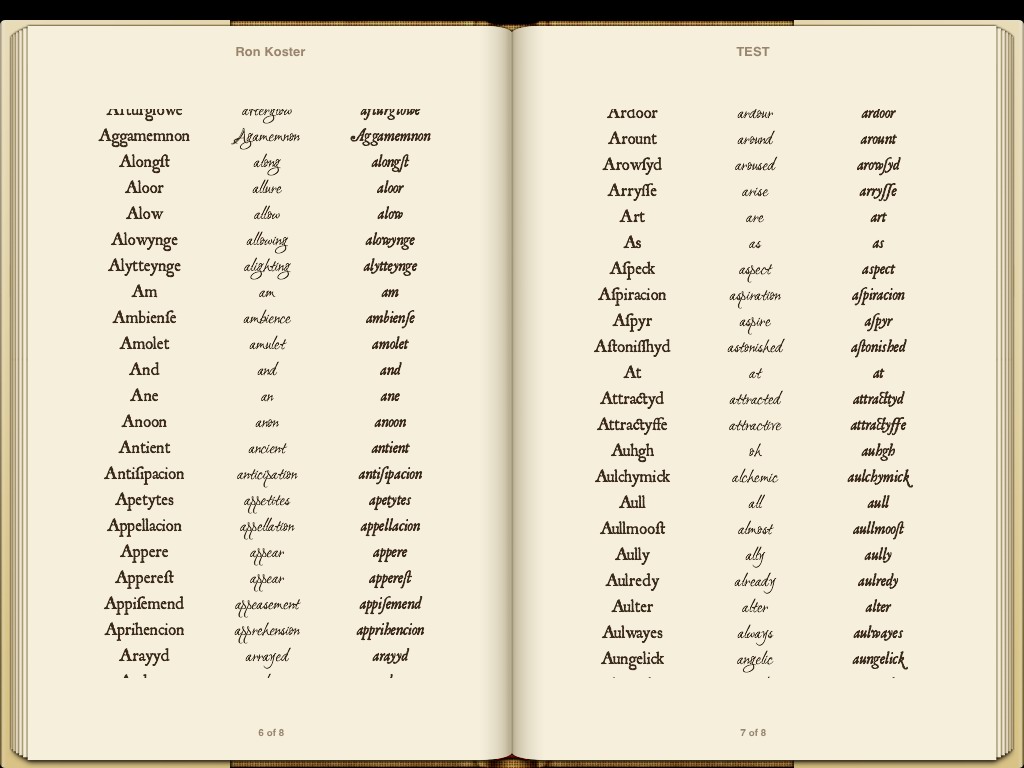 Ron Koster
Afturglowe afterglow afturglowe
Aggamemnon Agamemnon Aggamemnon
Alongſt along alongſt
Aloor allure aloor
Alow allow alow
Alowynge allowing alowynge
Alytteynge alighting alytteynge
Am am am
Ambienſe ambience ambienſe
Amolet amulet amolet
And and and
Ane an ane
Anoon anon anoon
Antient ancient antient
Antiſipacion anticipation antiſipacion
Apetytes appetites apetytes
Appellacion appellation appellacion
Appere appear appere
Appereſt appear appereſt
Appiſemend appeasement appiſemend
Aprihencion apprehension apprihencion
Arayyd arrayed arayyd
6 of 8
TEST
Ardoor ardour ardoor
Arount around arount
Arowſyd aroused arowſyd
Arryſſe arise arryſſe
Art are art
As as as
Aſpeck aspect aspect
Aſpiracion aspiration aſpiracion
Aſpyr aspire aſpyr
Aſtoniſſhyd astonished aſtonished
At at at
Attractyd attracted attractyd
Attractyſſe attractive attractyſſe
Auhgh oh auhgh
Aulchymick alchemic aulchymick
Aull all aull
Aullmooſt almost aullmooſt
Aully ally aully
Aulredy already aulredy
Aulter alter alter
Aulwayes always aulwayes
Aungelick angelic aungelick
7 of 8